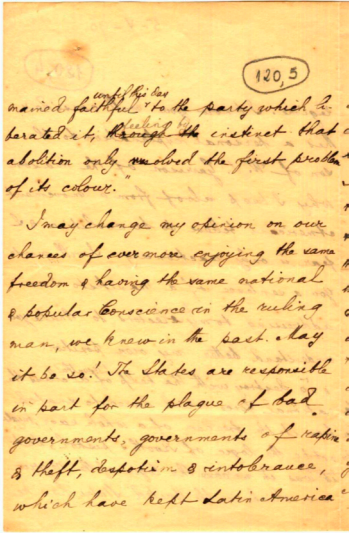 120,5
until his day
mained faithful to the party which li-
feeling by
berated it, through the instinct that
abolition only resolved the first problem
of its colour."
I may change my opinion on our
chances of evermore enjoying the same
freedom & having the same national
& popular Conscience in the ruling
man, we knew in the past. May
it be so! The States are responsible
in part for the plague of bad
governments, governments of rapine
& theft, despotism & intolerance,
which have kept Latin America